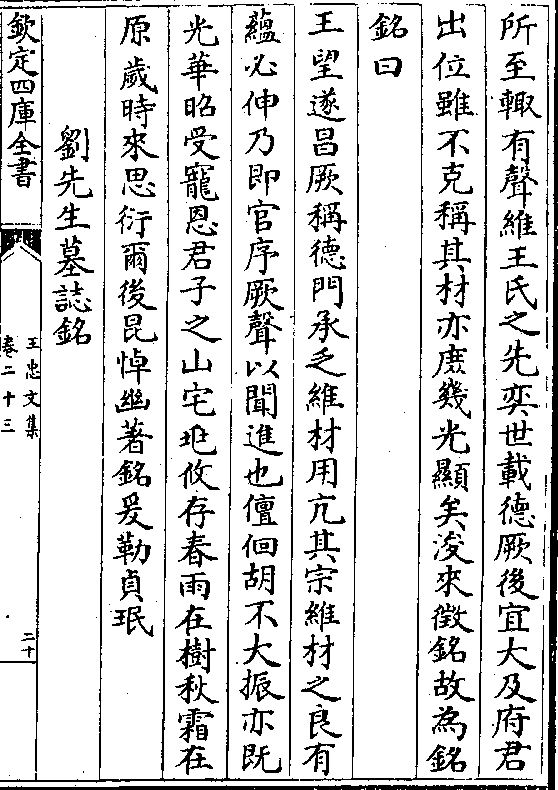 所至輙有聲維王氏之先奕世載德厥後宜大及府君
出位雖不克稱其材亦庶幾光顯矣浚來徵銘故為銘
銘曰
王望遂昌厥稱德門承乏維材用亢其宗維材之良有
蘊必伸乃即官序厥聲以聞進也儃佪胡不大振亦既
光華昭受寵恩君子之山宅兆攸存春雨在樹秋霜在
原歲時來思衍爾後昆悼幽著銘爰勒貞珉
劉先生墓誌銘
欽定四庫全書
王忠文集
卷二十三
二十